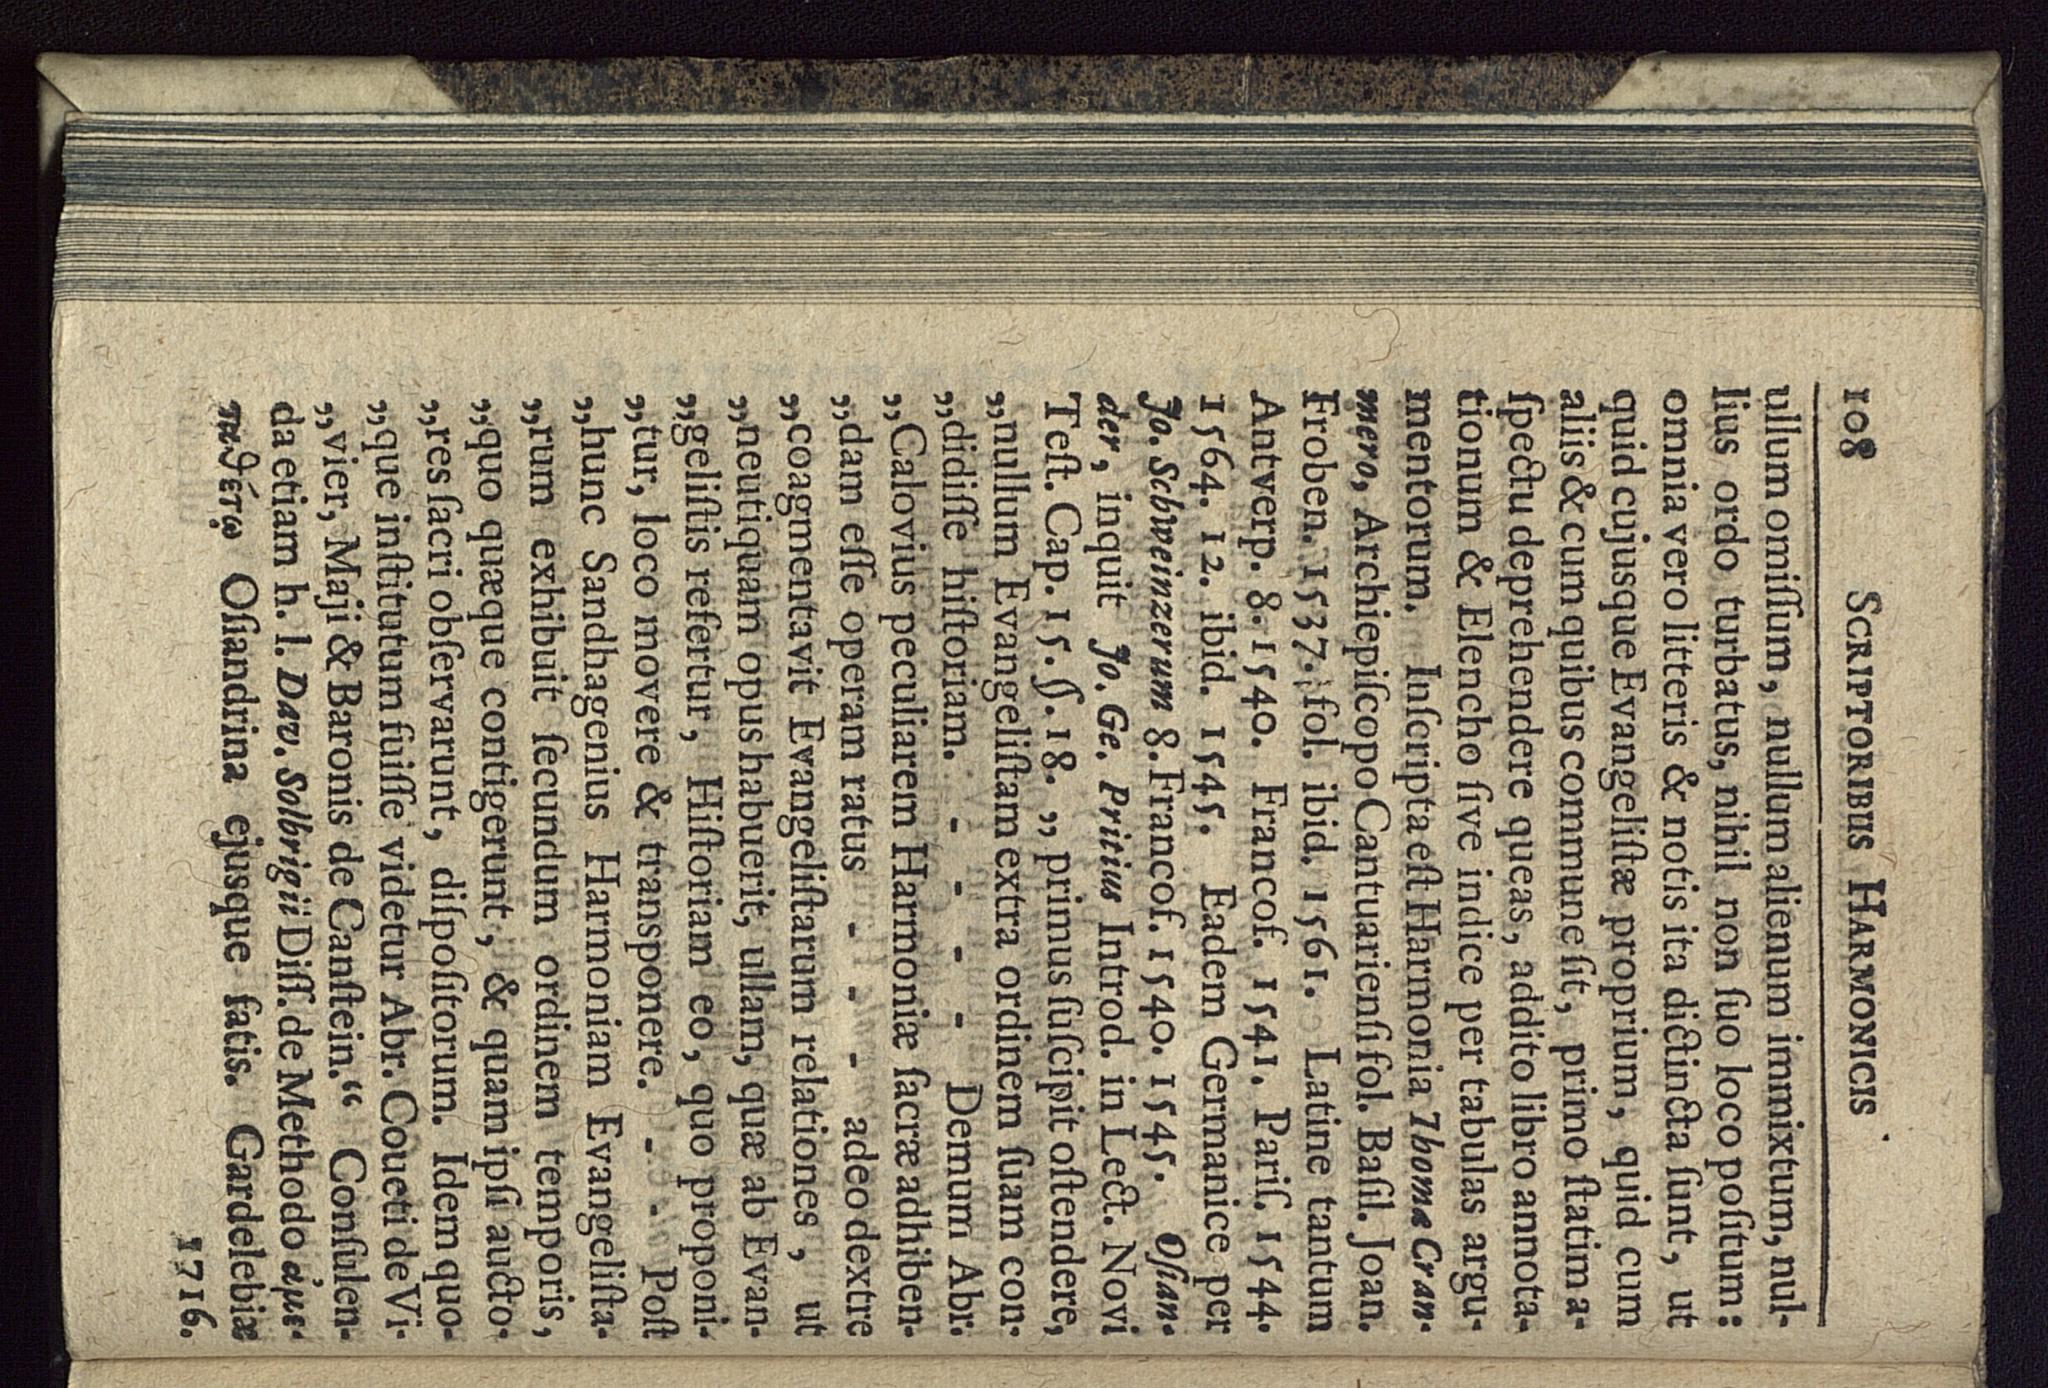 108 SCRIPTORIBUS HARMONICIS
ullum omiſſum, nullum alienum immixtum, nul-
lius ordo turbatus, nihil non ſuo loco poſitum:
omnia vero litteris & notis ita dictincta ſunt, ut
quid cujusque Evangeliſtæ proprium, quid cum
aliis & cum quibus commune ſit, primo ſtatim a-
ſpectu deprehendere queas, addito libro annota-
tionum & Elencho ſive indice per tabulas argu-
mentorum. Inſcripta eſt Harmonia Thomæ Cran-
mero, Archiepiſcopo Cantuarienſi fol. Baſil. Joan.
Froben. 1537. fol. ibid. 1561. Latine tantum
Antverp. 8. 1540. Francof. 1541. Pariſ. 1544.
1564. 12. ibid. 1545. Eadem Germanice per
Jo. Schweinzerum 8. Francof. 1540. 1545. Oſian-
der, inquit Jo. Ge. Pritius Introd. in Lect. Novi
Teſt. Cap. 15. §. 18. „ primus ſuſcipit oſtendere,
„nullum Evangeliſtam extra ordinem ſuam con-
„didiſſe hiſtoriam. - - - - Demum Abr.
„Calovius peculiarem Harmoniæ ſacræ adhiben-
„dam eſſe operam ratus - - - adeo dextre
„coagmentavit Evangeliſtarum relationes, ut
„neutiquam opus habuerit, ullam, quæ ab Evan-
„geliſtis refertur, Hiſtoriam eo, quo proponi-
„tur, loco movere & transponere. - - Poſt
„hunc Sandhagenius Harmoniam Evangeliſta-
„rum exhibuit ſecundum ordinem temporis,
„quo quæque contigerunt, & quam ipſi aucto-
„res ſacri obſervarunt, diſpoſitorum. Idem quo-
„que inſtitutum fuiſſe videtur Abr. Coueti de Vi-
„vier, Maji & Baronis de Canſtein.“ Conſulen-
da etiam h. l. Dav. Solbrigii Diſſ. de Methodo ἀμε-
ταθέτῳ Oſiandrina ejusque fatis. Gardelebiæ
1716.